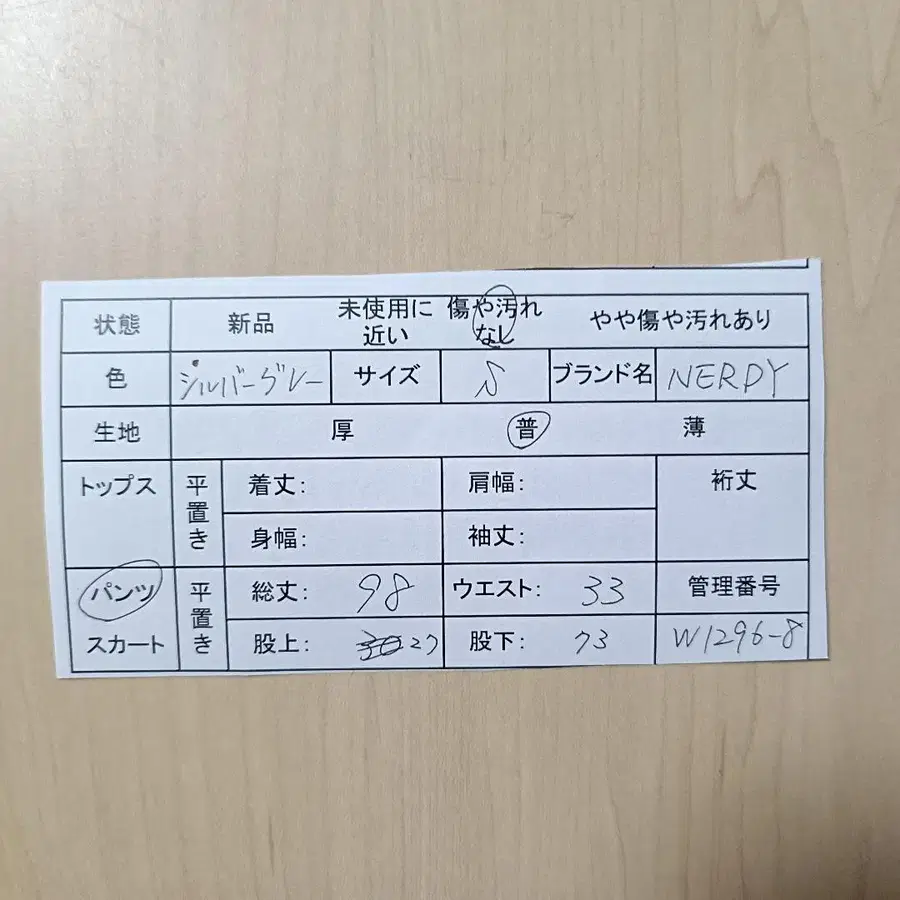 状態 新品 未使用に近い 傷や汚れなし やや傷や汚れあり
色 シルバーグレー サイズ S ブランド名 NERDY
生地 厚 普 薄
トップス 平置き 着丈: 肩幅: 裄丈
身幅: 袖丈:
パンツ 平置き 総丈: 98 ウエスト: 33 管理番号
スカート 股上: 27 股下: 73 W1296-8